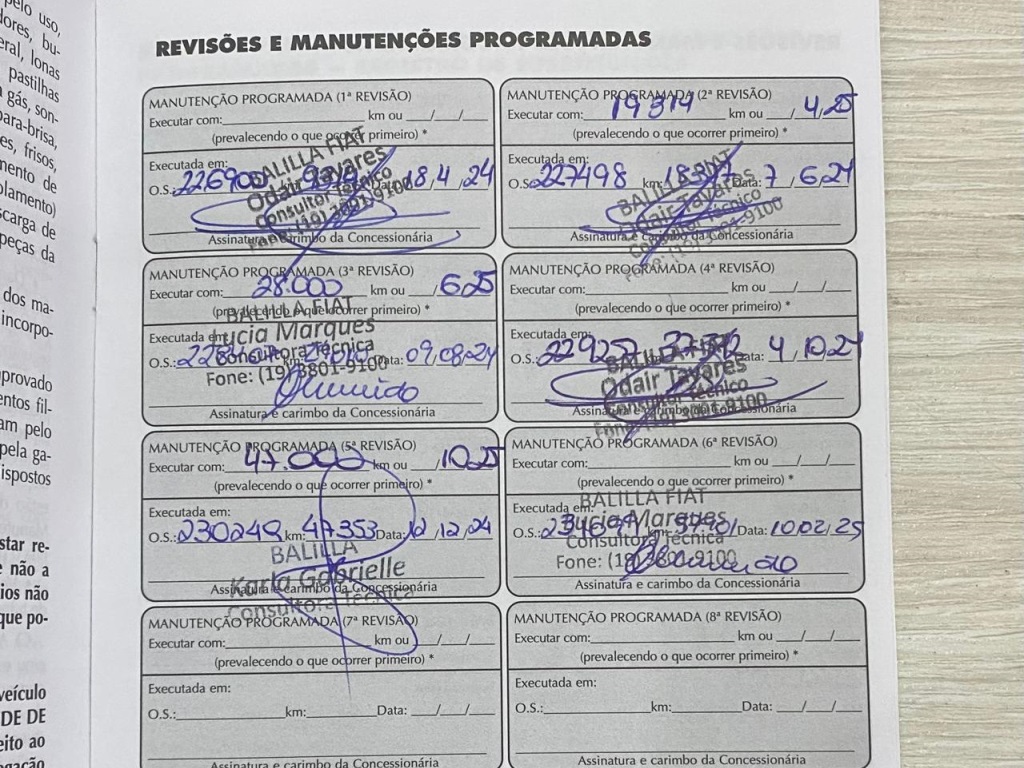 pelo uso,
dores, bu-
eral, lonas
pastilhas
gás, son-
para-brisa,
es, frisos,
mento de
olamento)
scarga de
peças da
dos ma-
incorpo-
provado
entos fil-
am pelo
pela ga-
ispostos
star re-
e não a
ios não
que po-
veículo
DE DE
eito ao
REVISÕES E MANUTENÇÕES PROGRAMADAS
MANUTENÇÃO PROGRAMADA (1ª REVISÃO)
Executar com: km ou / /
(prevalecendo o que ocorrer primeiro) *
Executada em:
O.S.: 226900 km: Data: 18,4,24
BALILLA FIAT
Odair Tavares
Consultor Técnico
Fone: (19) 3801-9100
Assinatura e carimbo da Concessionária
MANUTENÇÃO PROGRAMADA (2ª REVISÃO)
Executar com: 19319 km ou / 4,25
(prevalecendo o que ocorrer primeiro) *
Executada em:
O.S.: 227498 km: Data: 7,6,24
BALILLA FIAT
Odair Tavares
Consultor Técnico
Fone: (19) 3801-9100
Assinatura e carimbo da Concessionária
MANUTENÇÃO PROGRAMADA (3ª REVISÃO)
Executar com: 28.000 km ou / 6,25
(prevalecendo o que ocorrer primeiro) *
BALILLA FIAT
Lucia Marques
Consultora Técnica
Fone: (19) 3801-9100
Executada em:
O.S.: km: Data: 09,08,24
Assinatura e carimbo da Concessionária
MANUTENÇÃO PROGRAMADA (4ª REVISÃO)
Executar com: km ou / /
(prevalecendo o que ocorrer primeiro) *
Executada em:
O.S.: km: Data: 4,10,24
BALILLA FIAT
Odair Tavares
Consultor Técnico
Fone: (19) 3801-9100
Assinatura e carimbo da Concessionária
MANUTENÇÃO PROGRAMADA (5ª REVISÃO)
Executar com: 47.000 km ou / 10,25
(prevalecendo o que ocorrer primeiro) *
Executada em:
O.S.: 230249 km: 47353 Data: 12,12,24
BALILLA
Karla Gabrielle
Consultora Técnica
Assinatura e carimbo da Concessionária
MANUTENÇÃO PROGRAMADA (6ª REVISÃO)
Executar com: km ou / /
(prevalecendo o que ocorrer primeiro) *
BALILLA FIAT
Executada em:
Lucia Marques
O.S.: km: Data: 10,02,25
Consultora Técnica
Fone: (19) 3801-9100
Assinatura e carimbo da Concessionária
MANUTENÇÃO PROGRAMADA (7ª REVISÃO)
Executar com: km ou / /
(prevalecendo o que ocorrer primeiro) *
Executada em:
O.S.: km: Data: / /
Assinatura e carimbo da Concessionária
MANUTENÇÃO PROGRAMADA (8ª REVISÃO)
Executar com: km ou / /
(prevalecendo o que ocorrer primeiro) *
Executada em:
O.S.: km: Data: / /
Assinatura e carimbo da Concessionária